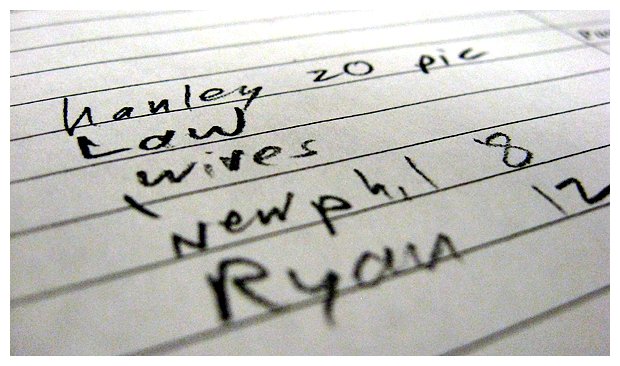 hanley 20 pic
Law
wires
Newphil 8
Ryan 12